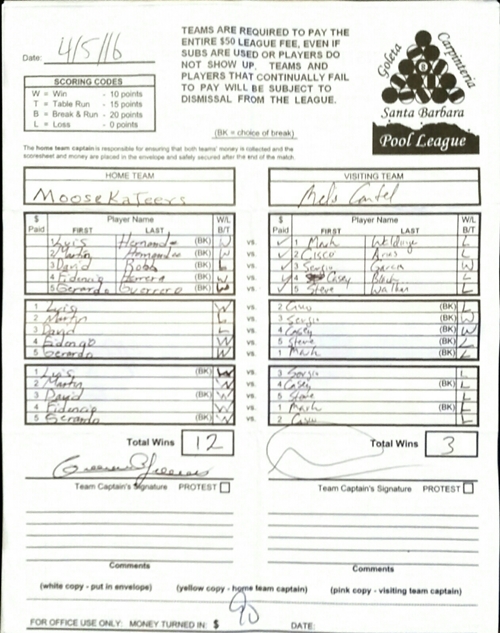 Date: 4/5/16
TEAMS ARE REQUIRED TO PAY THE
ENTIRE $50 LEAGUE FEE, EVEN IF
SUBS ARE USED OR PLAYERS DO
NOT SHOW UP. TEAMS AND
PLAYERS THAT CONTINUALLY FAIL
TO PAY WILL BE SUBJECT TO
DISMISSAL FROM THE LEAGUE.
Goleta Carpinteria
Santa Barbara
Pool League
SCORING CODES
W = Win - 10 points
T = Table Run - 15 points
B = Break & Run - 20 points
L = Loss - 0 points
(BK = choice of break)
The home team captain is responsible for ensuring that both teams' money is collected and the
scoresheet and money are placed in the envelope and safely secured after the end of the match.
HOME TEAM VISITING TEAM
MooseKaTeers Mel's Cartel
$ Player Name W/L $ Player Name W/L
Paid FIRST LAST B/T Paid FIRST LAST B/T
1 Luis (BK) W vs. 1 Mark L
2 Martin W vs. 2 Cisco L
3 David (BK) L vs. 3 Sergio W
4 Fidencio Herrera W vs. 4 Casey L
5 Gerardo Guerrero (BK) W vs. 5 Steve L
1 Luis W vs. 2 (BK) L
2 Martin vs. 3 Sergio
3 David L vs. 4 Casey (BK) W
4 W vs. 5 Steve L
5 Gerardo W vs. 1 Mark (BK) L
1 Luis (BK) W vs. 3 Sergio L
2 Martin W vs. 4 Casey (BK) L
3 David (BK) W vs. 5 L
4 Fidencio W vs. 1 Mark (BK) L
5 Gerardo (BK) W vs. 2 L
Total Wins 12 Total Wins 3
Team Captain's Signature PROTEST Team Captain's Signature PROTEST
Comments Comments
(white copy - put in envelope) (yellow copy - home team captain) (pink copy - visiting team captain)
FOR OFFICE USE ONLY: MONEY TURNED IN: $ 90 DATE: